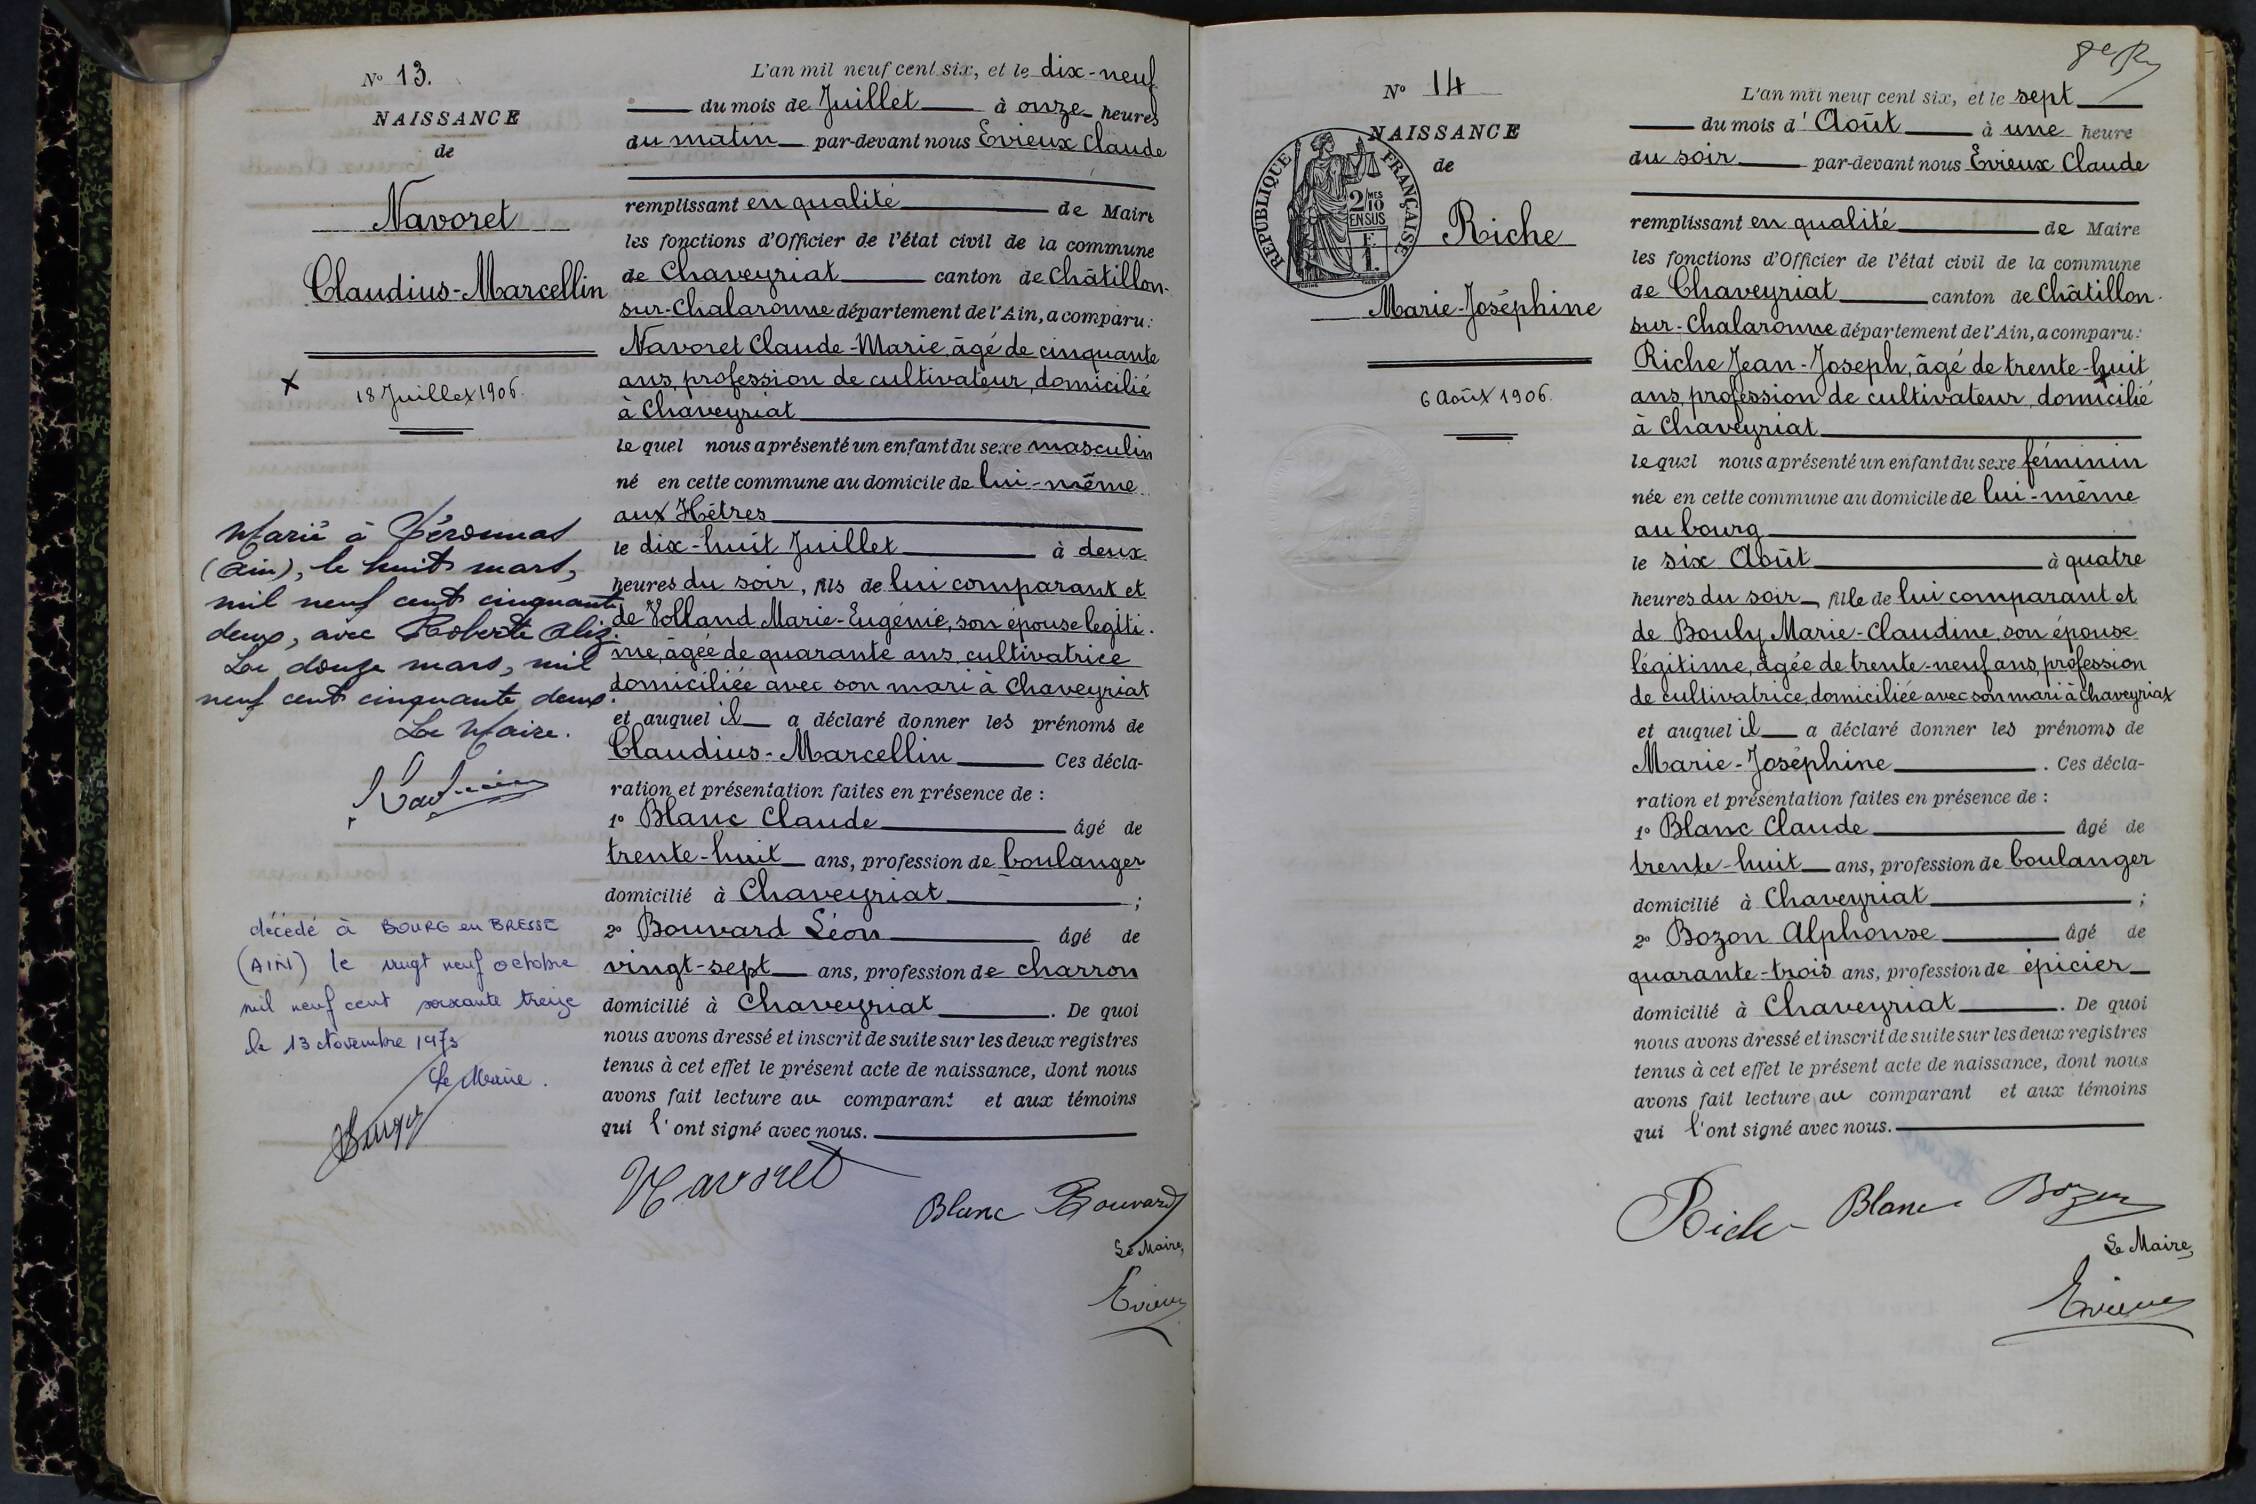 N° 13.
NAISSANCE
de
Navoret
Claudius-Marcellin
18 Juillet 1906.
Marié à Péronnas
(Ain), le huit mars,
mil neuf cent cinquante
deux, avec Roberte Aliz.
Le douze mars, mil
neuf cent cinquante deux.
Le Maire.
décédé à BOURG en BRESSE
(AIN) le vingt neuf octobre
mil neuf cent soixante treize
le 13 Novembre 1973
Le Maire.
L'an mil neuf cent six, et le dix-neuf
du mois de Juillet à onze heures
du matin par-devant nous Evieux Claude
remplissant en qualité de Maire
les fonctions d'Officier de l'état civil de la commune
de Chaveyriat canton de Châtillon-
sur-Chalaronne département de l'Ain, a comparu:
Navoret Claude-Marie, âgé de cinquante
ans, profession de cultivateur, domicilié
à Chaveyriat
lequel nous a présenté un enfant du sexe masculin
né en cette commune au domicile de lui-même
aux Hêtres
le dix-huit Juillet à deux
heures du soir, fils de lui comparant et
de Volland Marie-Eugénie, son épouse légiti-
me, âgée de quarante ans, cultivatrice
domiciliée avec son mari à Chaveyriat
et auquel il a déclaré donner les prénoms de
Claudius-Marcellin Ces décla-
ration et présentation faites en présence de :
1° Blanc Claude âgé de
trente-huit ans, profession de boulanger
domicilié à Chaveyriat ;
2° Bouvard Léon âgé de
vingt-sept ans, profession de charron
domicilié à Chaveyriat. De quoi
nous avons dressé et inscrit de suite sur les deux registres
tenus à cet effet le présent acte de naissance, dont nous
avons fait lecture au comparant et aux témoins
qui l'ont signé avec nous.
Navoret
Blanc Bouvard
Le Maire,
Evieux
N° 14
NAISSANCE
de
RÉPUBLIQUE FRANÇAISE
2/10 MES
EN SUS
Riche
Marie-Joséphine
6 Août 1906.
L'an mil neuf cent six, et le sept
du mois d'Août à une heure
du soir par-devant nous Evieux Claude
remplissant en qualité de Maire
les fonctions d'Officier de l'état civil de la commune
de Chaveyriat canton de Châtillon-
sur-Chalaronne département de l'Ain, a comparu:
Riche Jean-Joseph, âgé de trente-huit
ans, profession de cultivateur, domicilié
à Chaveyriat
lequel nous a présenté un enfant du sexe féminin
née en cette commune au domicile de lui-même
au bourg
le six Août à quatre
heures du soir, fille de lui comparant et
de Bouly Marie-Claudine, son épouse
légitime, âgée de trente-neuf ans, profession
de cultivatrice, domiciliée avec son mari à Chaveyriat
et auquel il a déclaré donner les prénoms de
Marie-Joséphine. Ces décla-
ration et présentation faites en présence de :
1° Blanc Claude âgé de
trente-huit ans, profession de boulanger
domicilié à Chaveyriat ;
2° Bozon Alphonse âgé de
quarante-trois ans, profession de épicier
domicilié à Chaveyriat. De quoi
nous avons dressé et inscrit de suite sur les deux registres
tenus à cet effet le présent acte de naissance, dont nous
avons fait lecture au comparant et aux témoins
qui l'ont signé avec nous.
Riche Blanc Bozon
Le Maire,
Evieux